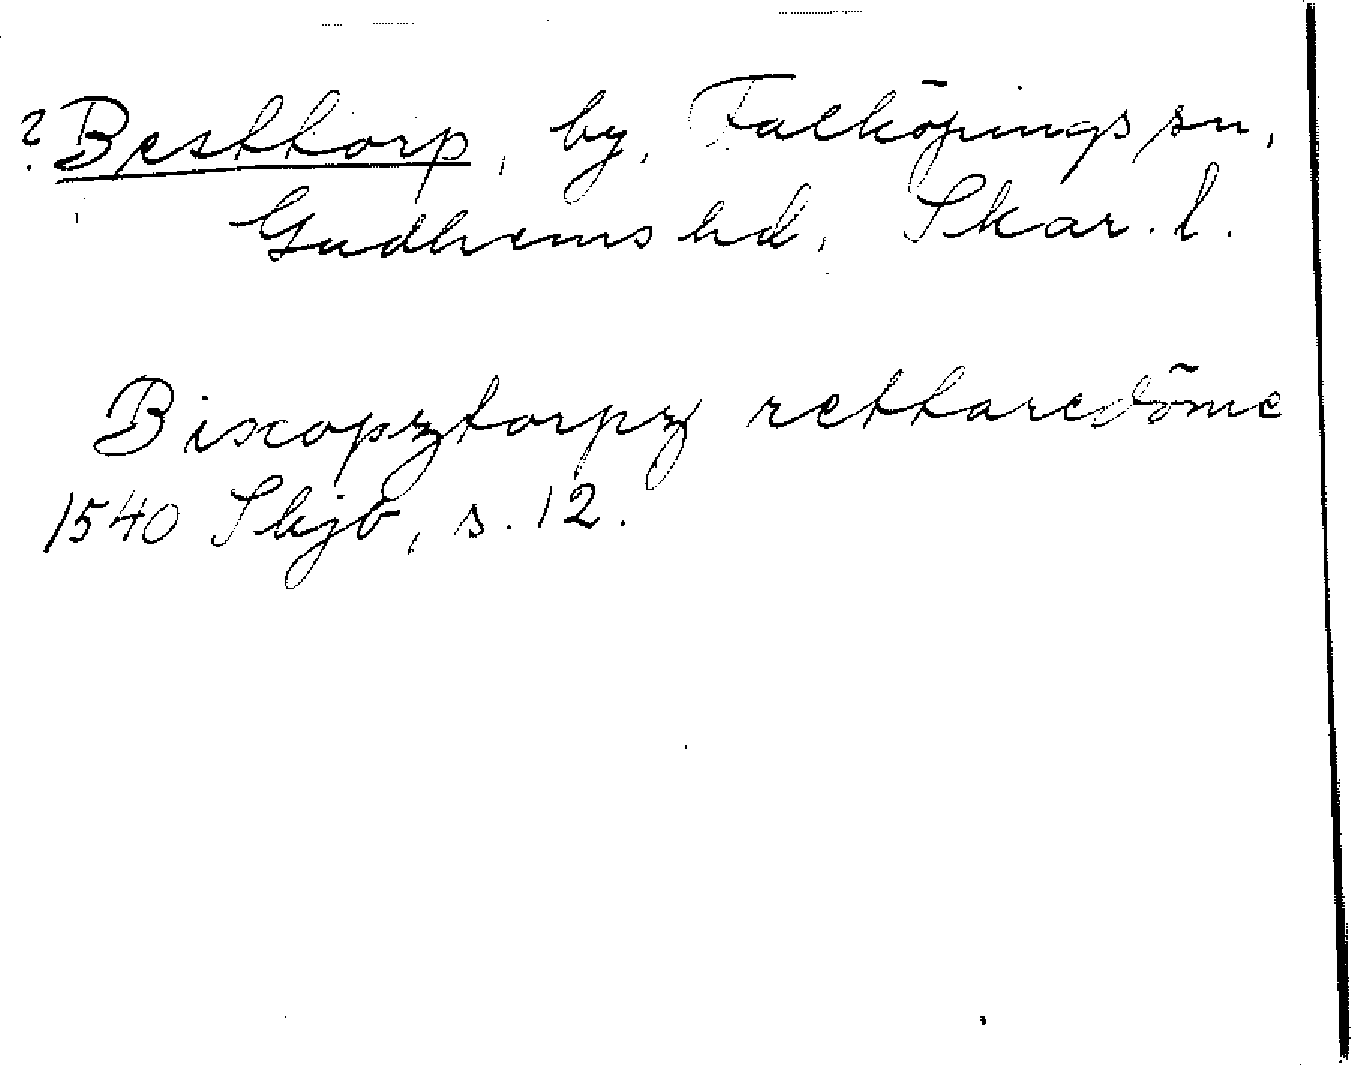 ? Besttorp, by, Falköpings sn,
Gudhems hd, Skar. l.
Bixopztorpz rettaredöme
1540 Skjb, s. 12.